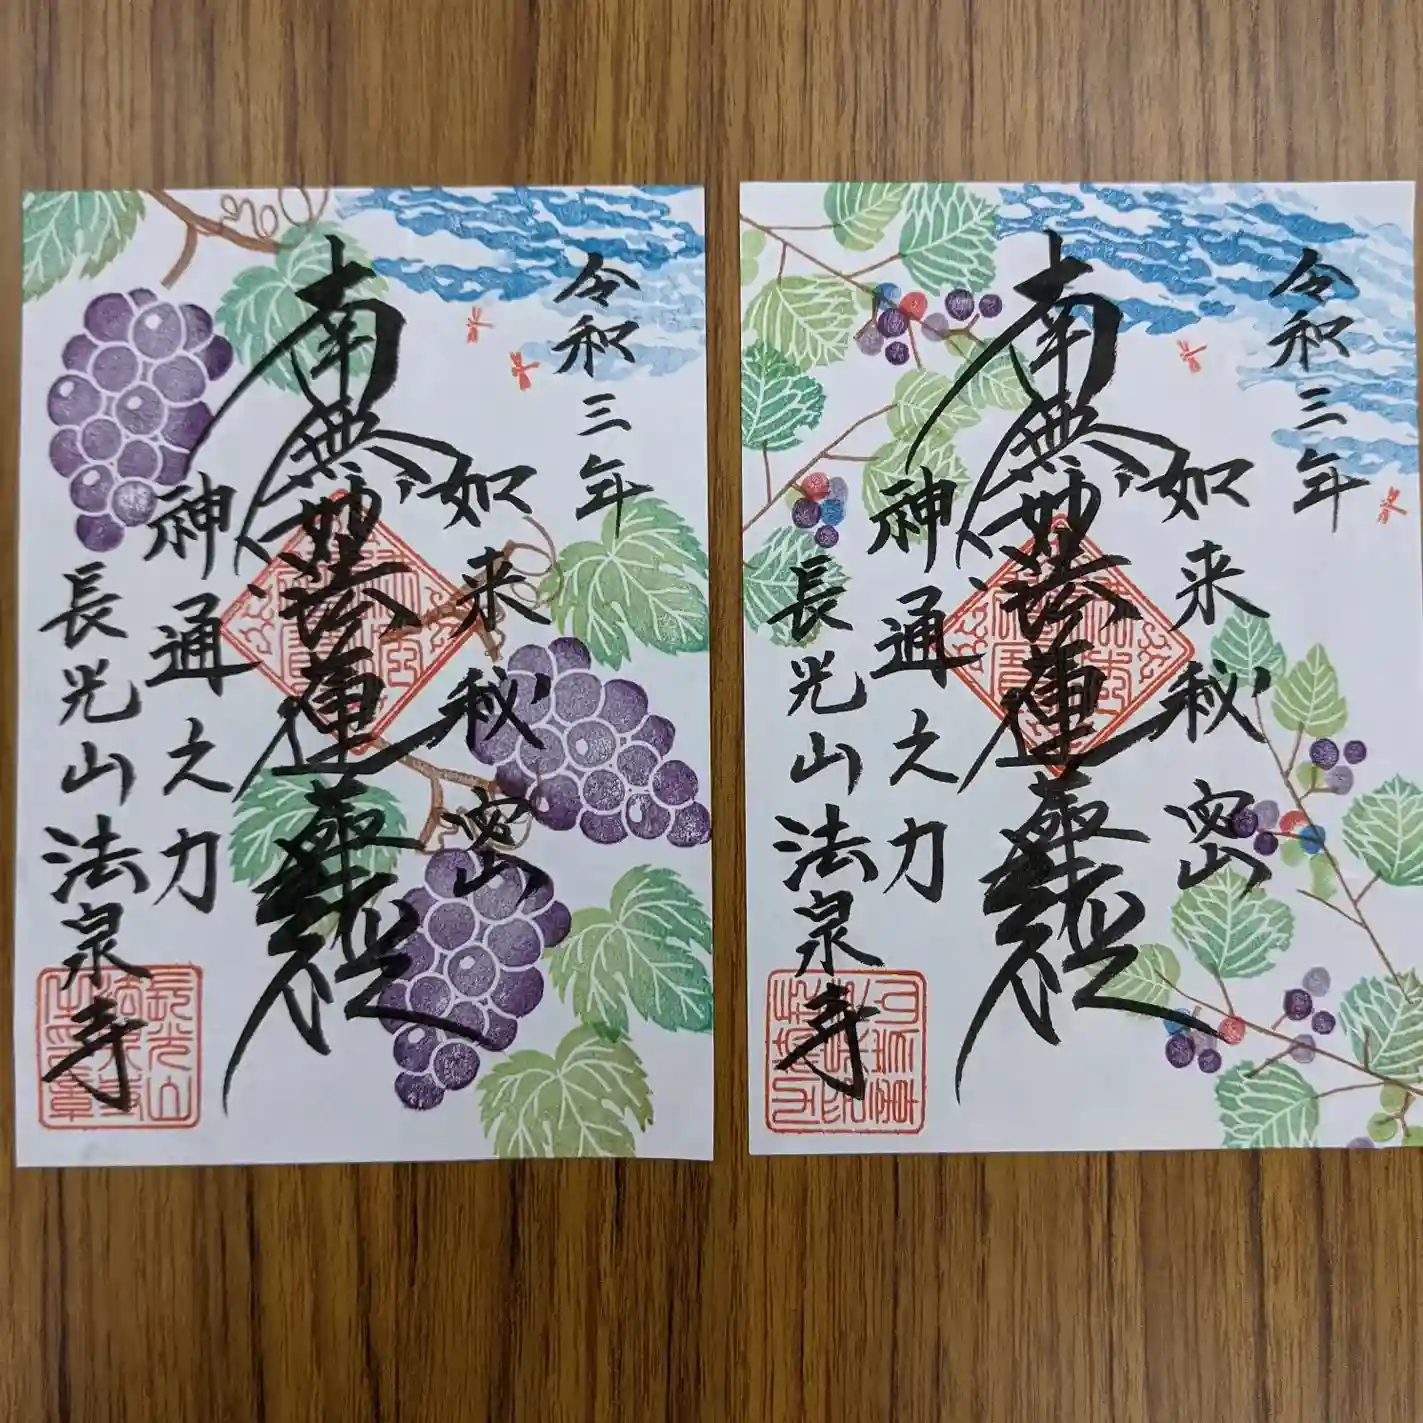 令和三年
如来秘密
南無妙法蓮華経
神通之力
長光山法泉寺
長光山
法泉寺
令和三年
如来秘密
南無妙法蓮華経
神通之力
長光山法泉寺